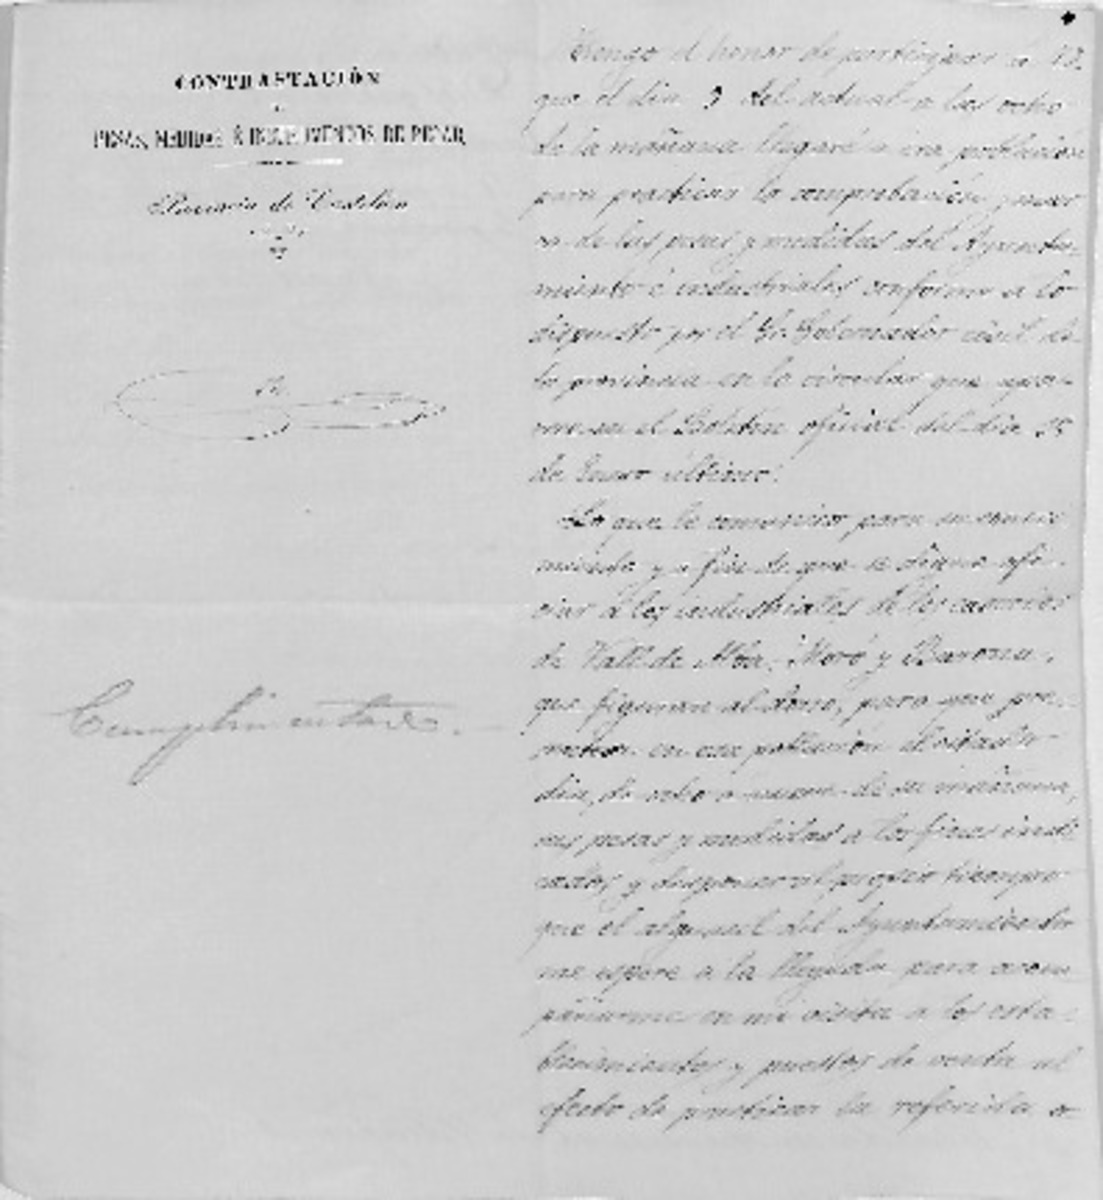 CONTRASTACIÓN
PESAS, MEDIDAS É INSTRUMENTOS DE PESAR
Provincia de Castellón
Cumplimentado.
Tengo el honor de participar a Vd.
que el dia 9 del actual a las ocho
de la mañana llegaré a esa población
para practicar la comprobación y mar
ca de las pesas y medidas del Ayunta-
miento é industriales conforme a lo
dispuesto por el Sr. Gobernador civil de
la provincia en la circular que apa-
rece en el Boletín oficial del dia 25
de Enero último.
Lo que le comunico para su conoci-
miento y a fin de que se digne ofi-
ciar a los industriales de los caseríos
de Vall de Alba, Moró y Barona,
que figuran al dorso, para que pre-
senten en esa población el citado
dia, de ocho a nueve de su mañana,
sus pesas y medidas a los fines indi-
cados, y disponer al propio tiempo
que el alguacil del Ayuntamiento
me espere a la llegada para acom
pañarme en mi visita a los esta-
blecimientos y puestos de venta al
efecto de practicar la referida o